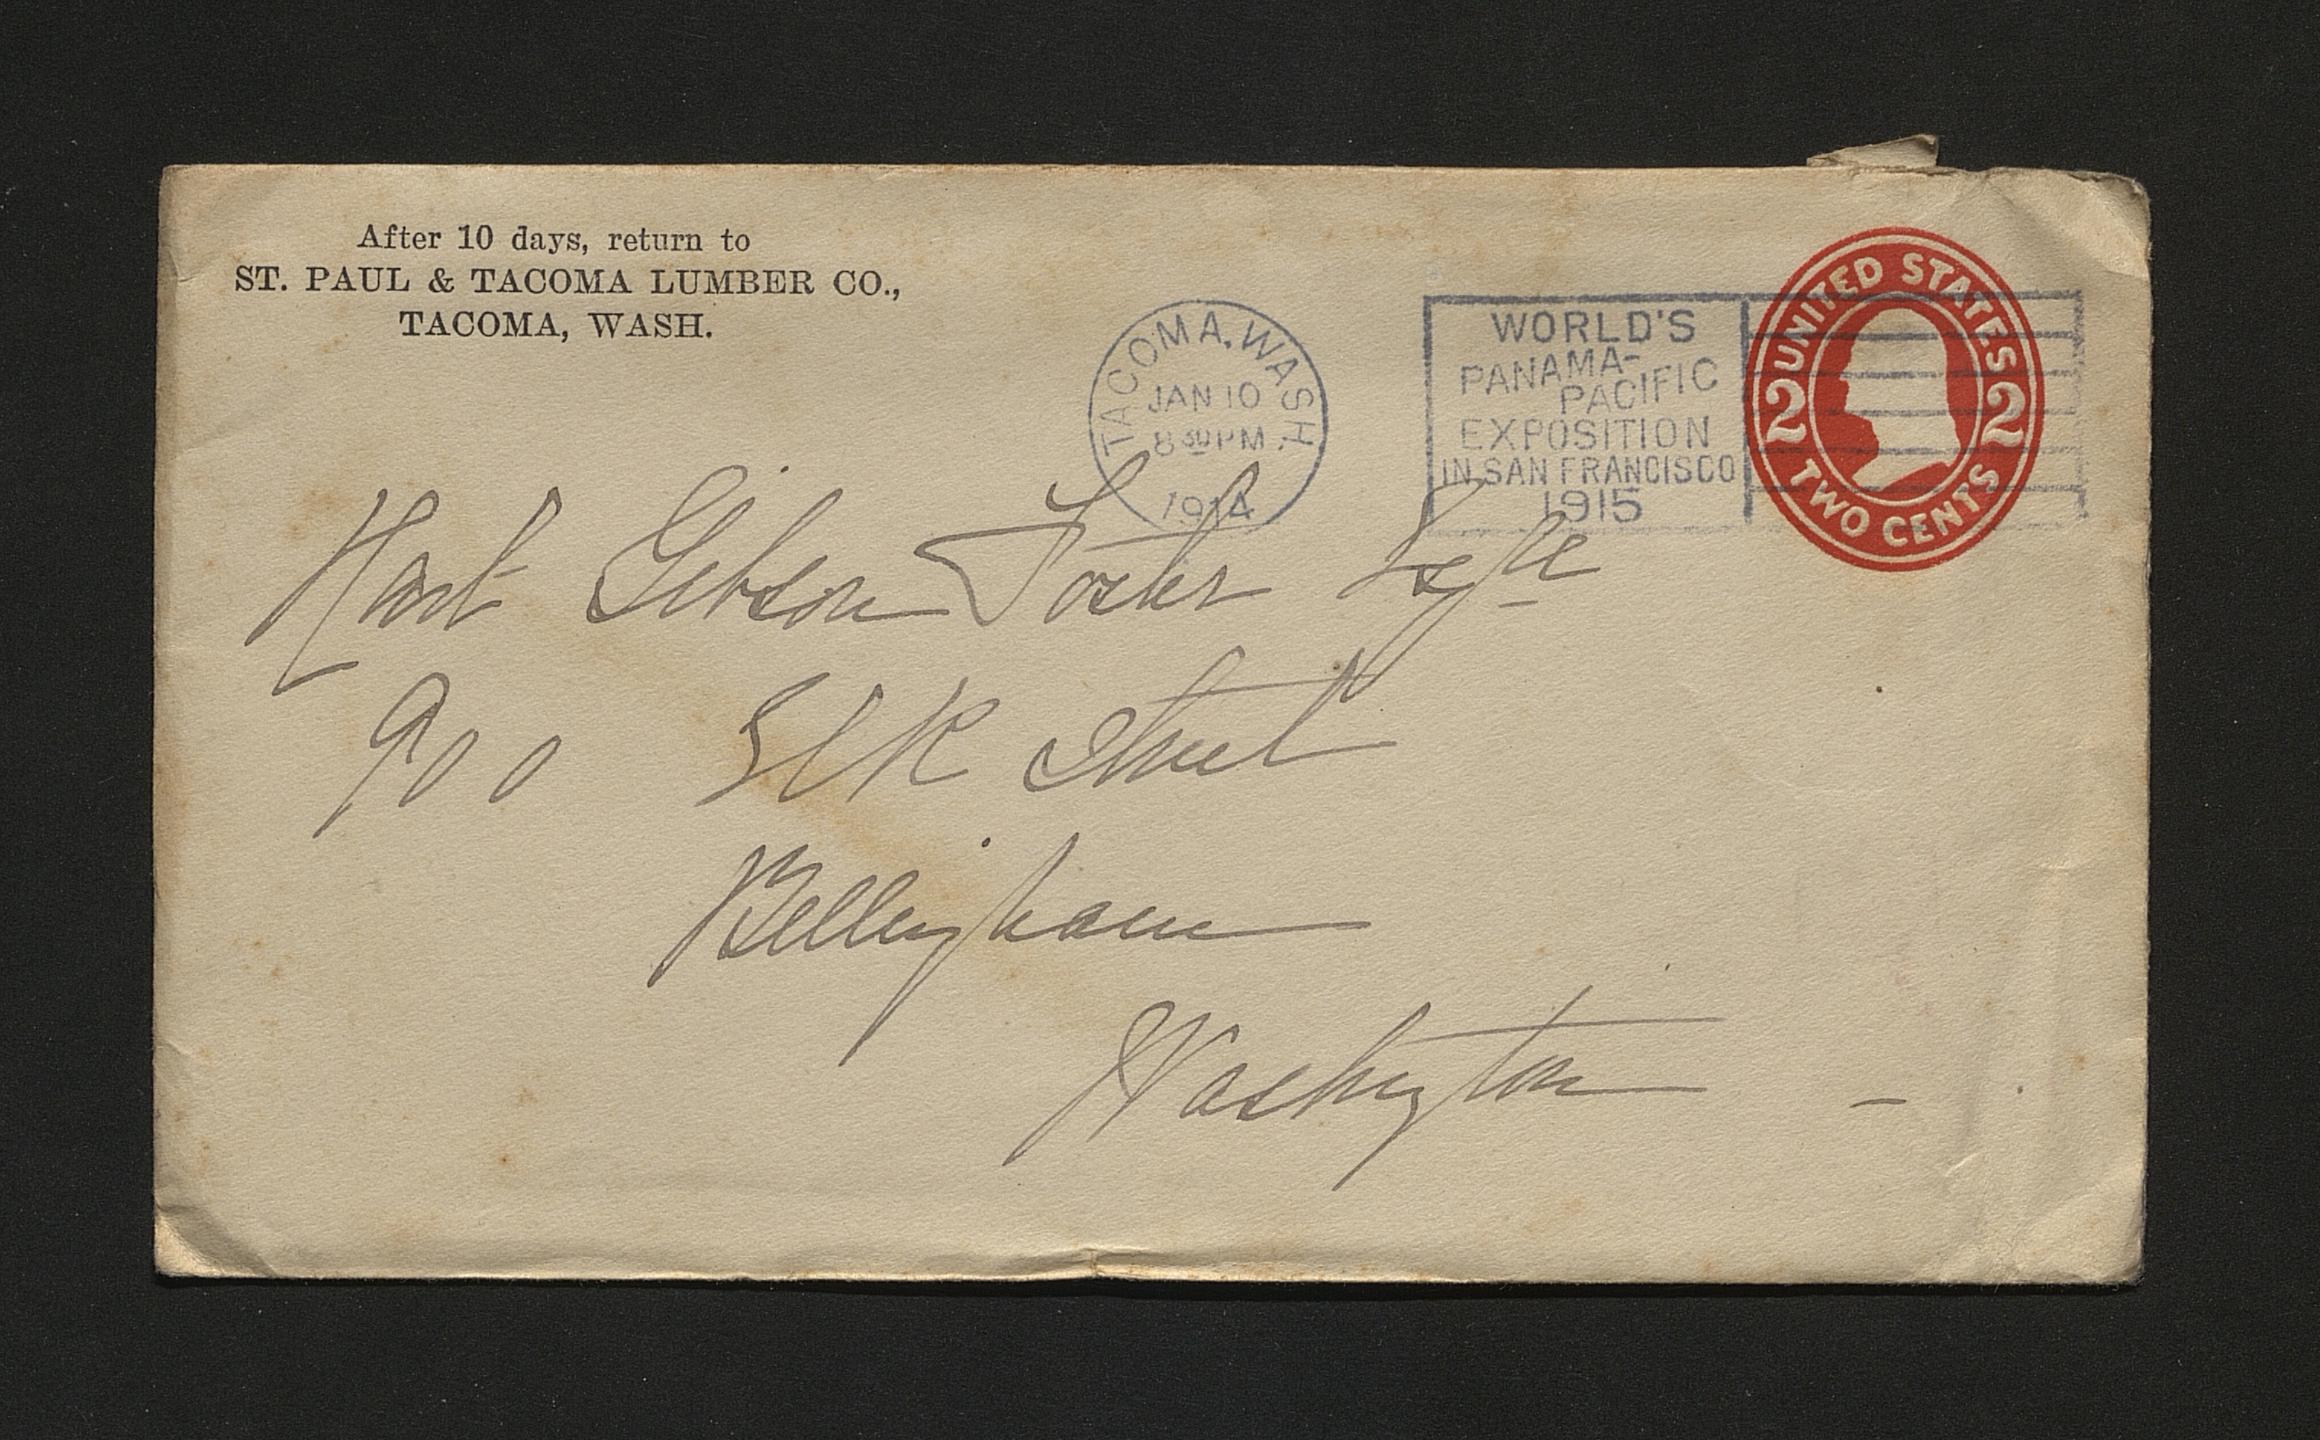 After 10 days, return to
ST. PAUL & TACOMA LUMBER CO.,
TACOMA, WASH.
TACOMA, WASH.
JAN 10
8 30 PM
1914
WORLD'S
PANAMA-
PACIFIC
EXPOSITION
IN SAN FRANCISCO
1915
UNITED STATES
2 2
TWO CENTS
Hart Gibson Foster Esqre
900 Elk Street
Bellingham
Washington